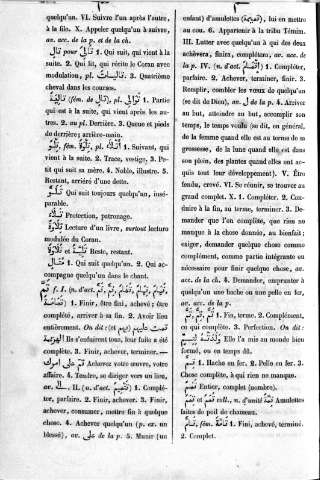 quelqu'un. VI. Suivre l'un après l'autre,
à la fin. X. Appeler quelqu'un à suivre,
av. acc. de la p. et de la ch.
تال pour تالي 1. Qui suit, qui vient à la
suite. 2. Qui lit, qui récite le Coran avec
modulation, pl. تاليات. 3. Quatrième
cheval dans les courses.
تالية (fém. de تالي), pl. توالي 1. Partie
qui est à la suite, qui vient après les au-
tres. 2. au pl. Derrière. 3. Queue et pieds
de derrière; arrière-main.
fém. تلوة, pl. أتلاء 1. Suivant, qui
vient à la suite. 2. Trace, vestige. 3. Pe-
tit qui suit sa mère. 4. Noble, illustre. 5.
Restant, arriéré d'une dette.
تلو Qui suit toujours quelqu'un, insé-
parable.
تلاء Protection, patronage.
تلاوة Lecture d'un livre, surtout lecture
modulée du Coran.
تلاوة et تلية Reste, restant.
متال 1. Qui suit quelqu'un. 2. Qui ac-
compagne quelqu'un dans le chant.
تم f. I. (n. d'act.
1. Finir, être fini, achevé; être
complété, arriver à sa fin. 2. Avoir lieu
entièrement. On dit: تمت عليهم
الهزيمة Ils s'enfuirent tous, leur fuite a été
complète. 3. Finir, achever, terminer.—
تم على أمرك Achevez votre œuvre, votre
affaire. 4. Tendre, se diriger vers un lieu,
av. II. (n. d'act. تتميم) 1. Complé-
ter, parfaire. 2. Finir, achever. 3. Finir,
achever, consumer, mettre fin à quelque
chose. 4. Achever quelqu'un (p. ex. un
blessé), av. على de la p. 5. Munir (un
enfant) d'amulettes (تميمة), lui en mettre
au cou. 6. Appartenir à la tribu Témim.
III. Lutter avec quelqu'un à qui des deux
achèvera, finira, complétera, av. acc. de
la p. IV. (n. d'act. إتمام) 1. Compléter,
parfaire. 2. Achever, terminer, finir. 3.
Remplir, combler les vœux de quelqu'un
(se dit de Dieu), av. ل de la p. 4. Arriver
au but, atteindre au but, accomplir son
temps, le temps voulu (se dit, en général,
de la femme quand elle est au terme de sa
grossesse, de la lune quand elle est dans
son plein, des plantes quand elles ont ac-
quis tout leur développement). V. Être
fendu, crevé. VI. Se réunir, se trouver au
grand complet. X. 1. Compléter. 2. Con-
duire à la fin, au terme, terminer. 3. De-
mander que l'on complète, que rien ne
manque à la chose donnée, au bienfait;
exiger, demander quelque chose comme
complément, comme partie intégrante ou
nécessaire pour finir quelque chose, av.
acc. de la ch. 4. Demander, emprunter à
quelqu'un une hache ou une pelle en fer,
av. acc. de la p.
تم 1. Fin, terme. 2. Complément,
ce qui complète. 3. Perfection. On dit:
ولدته لتم Elle l'a mis au monde bien
formé, ou en temps dû.
تم 1. Hache en fer. 2. Pelle en fer. 3.
Chose complète, à qui rien ne manque.
تمم Entier, complet (nombre).
تمم et تمم coll., n. d'unité تمة Amulettes
faites de poil de chameau.
تام, fém. تامة 1. Fini, achevé, terminé.
2. Complet.